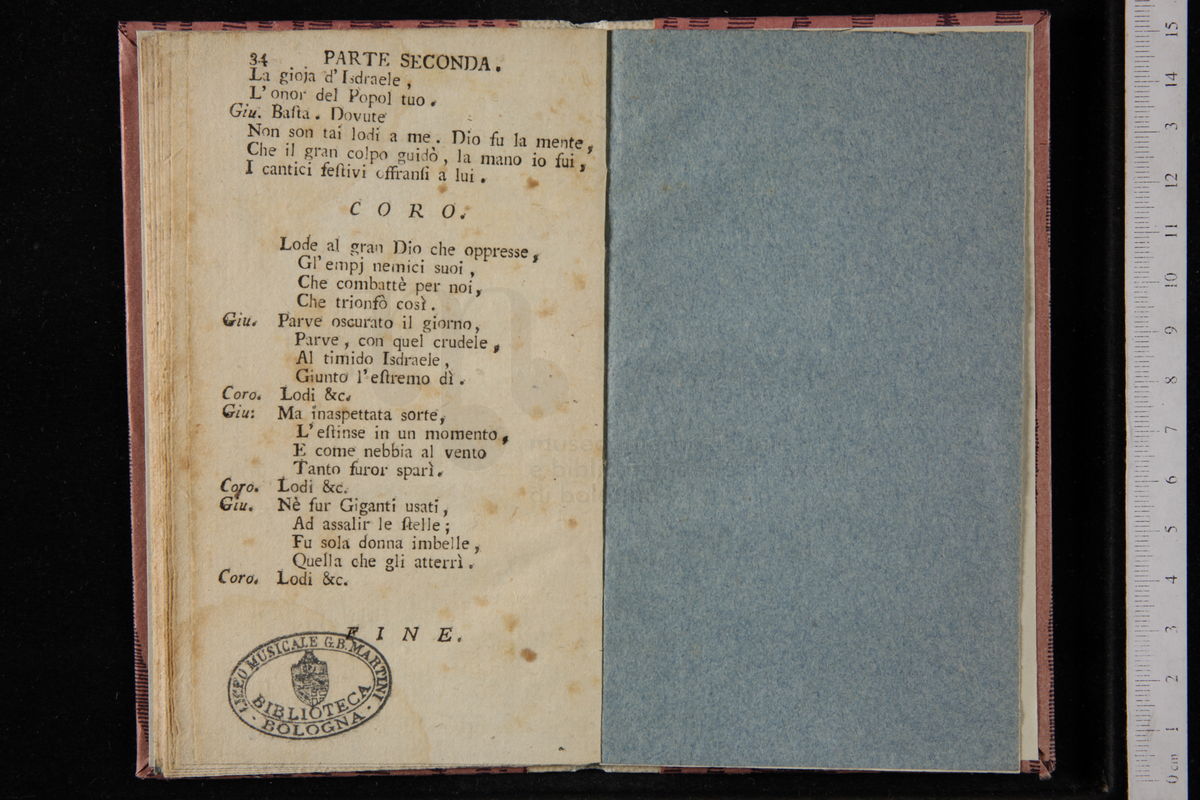 34 PARTE SECONDA.
La gioja d'Isdraele,
L'onor del Popol tuo.
Giu. Baſta. Dovute
Non son tai lodi a me. Dio fu la mente,
Che il gran colpo guidò, la mano io fui,
I cantici feſtivi offranſi a lui.
CORO.
Lode al gran Dio che oppresse,
Gl'empj nemici suoi,
Che combattè per noi,
Che trionfò così.
Giu. Parve oscurato il giorno,
Parve, con quel crudele,
Al timido Isdraele,
Giunto l'eſtremo dì.
Coro. Lodi &c.
Giu: Ma inaspettata sorte,
L'eſtinse in un momento,
E come nebbia al vento
Tanto furor sparì.
Coro. Lodi &c.
Giu. Nè fur Giganti usati,
Ad assalir le ſtelle;
Fu sola donna imbelle,
Quella che gli atterrì.
Coro. Lodi &c.
FINE.
LICEO MUSICALE G.B. MARTINI
BIBLIOTECA
· BOLOGNA ·
museo
e bibl
di bolo
15
14
3
12
11
10
9
8
7
6
5
4
3
2
1
0 cm